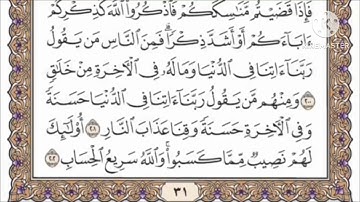 فَإِذَا قَضَيْتُم مَّنَٰسِكَكُمْ فَٱذْكُرُوا۟ ٱللَّهَ كَذِكْرِكُمْ
ءَابَآءَكُمْ أَوْ أَشَدَّ ذِكْرًا ۗ فَمِنَ ٱلنَّاسِ مَن يَقُولُ
رَبَّنَآ ءَاتِنَا فِى ٱلدُّنْيَا وَمَا لَهُۥ فِى ٱلْءَاخِرَةِ مِنْ خَلَٰقٍ
٢٠٠ وَمِنْهُم مَّن يَقُولُ رَبَّنَآ ءَاتِنَا فِى ٱلدُّنْيَا حَسَنَةً
وَفِى ٱلْءَاخِرَةِ حَسَنَةً وَقِنَا عَذَابَ ٱلنَّارِ ٢٠١ أُو۟لَٰٓئِكَ
لَهُمْ نَصِيبٌ مِّمَّا كَسَبُوا۟ ۚ وَٱللَّهُ سَرِيعُ ٱلْحِسَابِ ٢٠٢
٣١